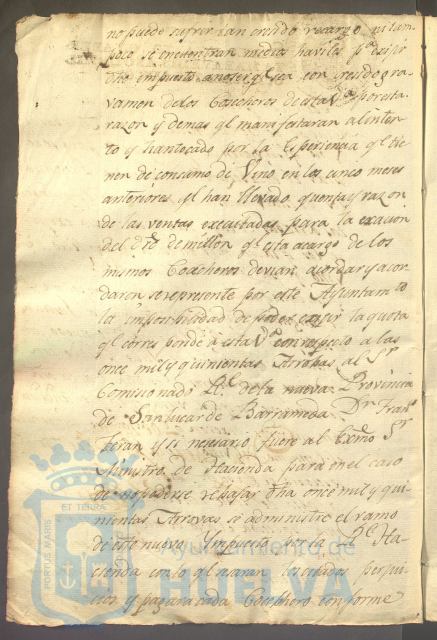 no puede sufrir tan crecido recargo ni tam
poco se encuentran medios haviles pª exijir
dho impuesto a no ser ql sea con gravamen
vamen de los Cosecheros de esta Vª por esta
razon y demas ql manifestaran al inten
to y han tocado por la Esperiencia ql tie
nen de consumo de Vino en los cinco meses
anteriores ql han llevado quenta y razon
de las ventas executadas para la exacion
del dro de millon ql esta a cargo de los
mismos Cosecheros devian acordar y acor
daron se represente por este Ayuntamto
la imposibilidad de poder exijir la quota
ql corresponde a esta Vª con respecto a las
once mil y quinientas Arrobas al Sr
Comisionado Rl de la nueva Provincia
de Sanlucar de Barrameda Dn Franco
Teran y si necesario fuere al Exmo Sr
Ministro de Hacienda para en el caso
de no poderse rebajar dha once mil y qui
nientas Arrovas se administre el ramo
de este nuevo Ympuesto por la Rl Ha
cienda con lo ql cesaran los citados perjui
cios y pagara cada Cosechero conforme
PORTUS MARIS ET TERRÆ
Ayuntamiento de
HUELVA